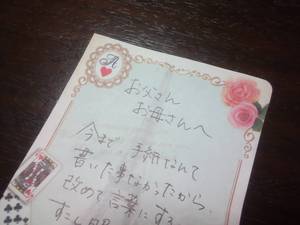 A
お父さん
お母さんへ
今まで、手紙なんて
書いた事なかったから、
改めて言葉にする